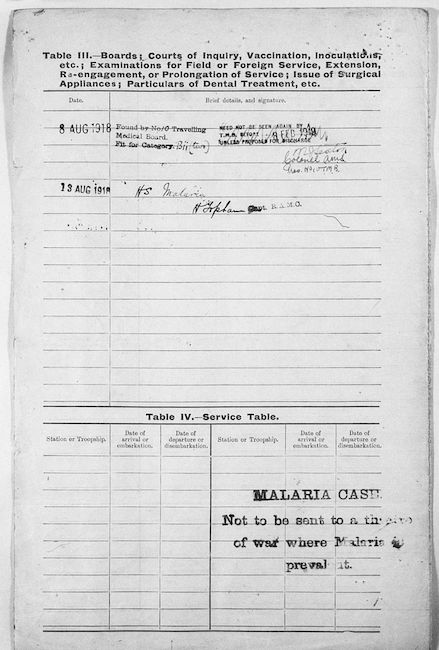 Table III.—Boards; Courts of Inquiry, Vaccination, Inoculations,
etc.; Examinations for Field or Foreign Service, Extension,
Re-engagement, or Prolongation of Service; Issue of Surgical
Appliances; Particulars of Dental Treatment, etc.
Date.
Brief details, and signature.
8 AUG 1918
Found by No 10 Travelling
Medical Board.
Fit for Category. Bii
NEED NOT BE SEEN AGAIN BY A
T.M.B. BEFORE FEB 1919
UNLESS PROPOSED FOR DISCHARGE
Colonel
13 AUG 1918
HS Malaria
Capt. R.A.M.C.
Table IV.—Service Table.
Station or Troopship.
Date of
arrival or
embarkation.
Date of
departure or
disembarkation.
Station or Troopship.
Date of
arrival or
embarkation.
Date of
departure or
disembarkation.
MALARIA CASE.
Not to be sent to a
of war where Malaria